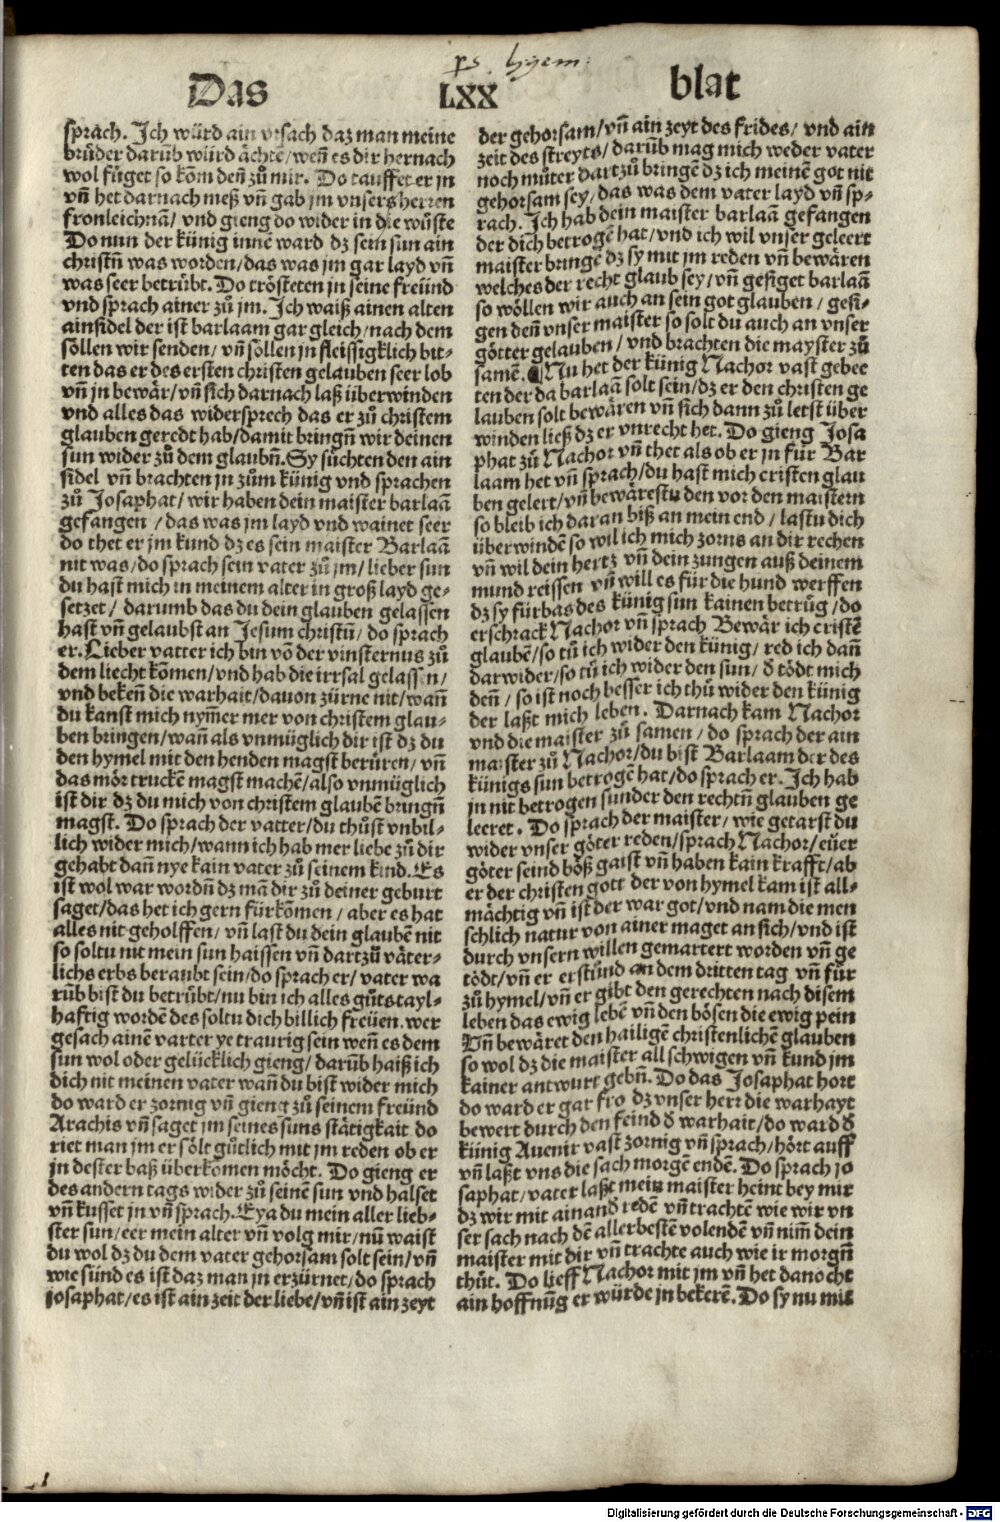 ps. hyem:
Das LXX blat
sprach. Ich würd ain vrsach daz man meine
brüder darūb würd ächtē/weñ es dir hernach
wol füget so kōm deñ zů mir. Do tauffet er jn
vñ het darnach meß vñ gab jm vnsers herren
fronleichnā/ vnd gieng do wider in die wüste
Do nun der künig innē ward dz sein sun ain
christñ was worden/das was jm gar layd vñ
was seer betrübt. Do trösteten jn seine freünd
vnd sprach ainer zů jm. Ich waiß ainen alten
ainsidel der ist barlaam gar gleich/nach dem
söllen wir senden/ vñ söllen jn fleissigklich bit-
ten das er des ersten christen gelauben seer lob
vñ jn bewär/vñ sich darnach laß überwinden
vnd alles das widersprech das er zů christem
glauben geredt hab/damit bringñ wir deinen
sun wider zů dem glaubñ. Sy sůchten den ain
sidel vñ brachten jn zům künig vnd sprachen
zů Josaphat/wir haben dein maister barlaā
gefangen /das was jm layd vnd wainet seer
do thet er jm kund dz es sein maister Barlaā
nit was/do sprach sein vater zů jm/ lieber sun
du hast mich in meinem alter in groß layd ge-
setzet/ darumb das du dein glauben gelassen
hast vñ gelaubst an Jesum christū/ do sprach
er. Lieber vatter ich bin vō der vinsternus zů
dem liecht kōmen/vnd hab die irrsal gelassen/
vnd bekeñ die warhait/dauon zürne nit/wañ
du kanst mich nym̄er mer von christem glau-
ben bringen/wañ als vnmüglich dir ist dz du
den hymel mit den henden magst berüren/ vñ
das mör truckē magst machē/also vnmüglich
ist dir dz du mich von christem glaubē bringñ
magst. Do sprach der vatter/du thůst vnbil-
lich wider mich/wann ich hab mer liebe zů dir
gehabt dañ nye kain vater zů seinem kind. Es
ist wol war wordñ dz mā dir zů deiner geburt
saget/das het ich gern fürkōmen/ aber es hat
alles nit geholffen/ vñ last du dein glaubē nit
so soltu nit mein sun haissen vñ dartzů väter-
lichs erbs beraubt sein/do sprach er/ vater wa
rūb bist du betrübt/nu bin ich alles gůts tayl-
hafftig wordē des soltu dich billich freüen. wer
gesach ainē varter ye traurig sein weñ es dem
sun wol oder gelücklich gieng/ darūb haiß ich
dich nit meinen vater wañ du bist wider mich
do ward er zornig vñ gieng zů seinem freünd
Arachis vñ saget jm seines suns stätigkait do
riet man jm er sölt gůtlich mit jm reden ob er
jn dester baß überkōmen möcht. Do gieng er
des andern tags wider zů seinē sun vnd halset
vñ kusset jn vñ sprach. Eya du mein aller lieb-
ster sun/eer mein alter vñ volg mir/nū waist
du wol dz du dem vater gehorsam solt sein/vñ
wie sünd es ist daz man jn erzürnet/do sprach
josaphat/es ist ain zeit der liebe/vñ ist ain zeyt
der gehorsam/vñ ain zeyt des frides/ vnd ain
zeit des streyts/ darūb mag mich weder vater
noch můter dartzů bringē dz ich meinē got nit
gehorsam sey/das was dem vater layd vñ sp-
rach. Ich hab dein maister barlaā gefangen
der dich betrogē hat/vnd ich wil vnser geleert
maister bringē dz sy mit jm reden vñ bewären
welches der recht glaub sey/vñ gesiget barlaā
so wöllen wir auch an sein got glauben/ gesi-
gen deñ vnser maister so solt du auch an vnser
götter gelauben/ vnd brachten die mayster zů
samē. Nu het der künig Nachor vast gebee
ten der da barlaā solt sein/dz er den christen ge
lauben solt bewären vñ sich dann zů letst über
winden ließ dz er vnrecht het. Do gieng Josa
phat zů Nachor vñ thet als ob er jn für Bar
laam het vñ sprach/du hast mich cristen glau
ben gelert/vñ bewärestu den vor den maistern
so bleib ich daran biß an mein end/ lastu dich
überwindē so wil ich mich zorns an dir rechen
vñ wil dein hertz vñ dein zungen auß deinem
mund reissen vñ will es für die hund werffen
dz sy fürbas des künig sun kainen betrüg/do
erschrack Nachor vñ sprach Bewär ich cristē
glaubē/so tů ich wider den künig/ red ich dañ
darwider/so tů ich wider den sun/ d̄ tödt mich
deñ/ so ist noch besser ich thů wider den künig
der laßt mich leben. Darnach kam Nachor
vnd die maister zů samen/ do sprach der ain
maister zů Nachor/du bist Barlaam der des
künigs sun betrogē hat/do sprach er. Ich hab
jn nit betrogen sunder den rechtñ glauben ge
leeret. Do sprach der maister/ wie getarst du
wider vnser göter reden/sprach Nachor/eüer
göter seind böß gaist vñ haben kain krafft/ab
er der christen gott der von hymel kam ist all-
mächtig vñ ist der war got/vnd nam die men
schlich natur von ainer maget an sich/vnd ist
durch vnsern willen gemartert worden vñ ge
tödt/vñ er erstůnd an dem dritten tag vñ für
zů hymel/vñ er gibt den gerechten nach disem
leben das ewig lebē vñ den bösen die ewig pein
Vñ bewäret den hailigē christenlichē glauben
so wol dz die maister all schwigen vñ kund jm
kainer antwurt gebñ. Do das Josaphat hort
do ward er gar fro dz vnser herr die warhayt
bewert durch den feind d̄ warhait/do ward d̄
künig Auenir vast zornig vñ sprach/hört auff
vñ laßt vns die sach morgē endē. Do sprach jo
saphat/vater laßt mein maister heint bey mir
dz wir mit ainand̄ redē vñ trachtē wie wir vn
ser sach nach dē allerbestē volendē vñ nim̄ dein
maister mit dir vñ trachte auch wie ir morgñ
thůt. Do lieff Nachor mit jm vñ het danocht
ain hoffnūg er würde jn bekerē. Do sy nu mit
Digitalisierung gefördert durch die Deutsche Forschungsgemeinschaft - DFG